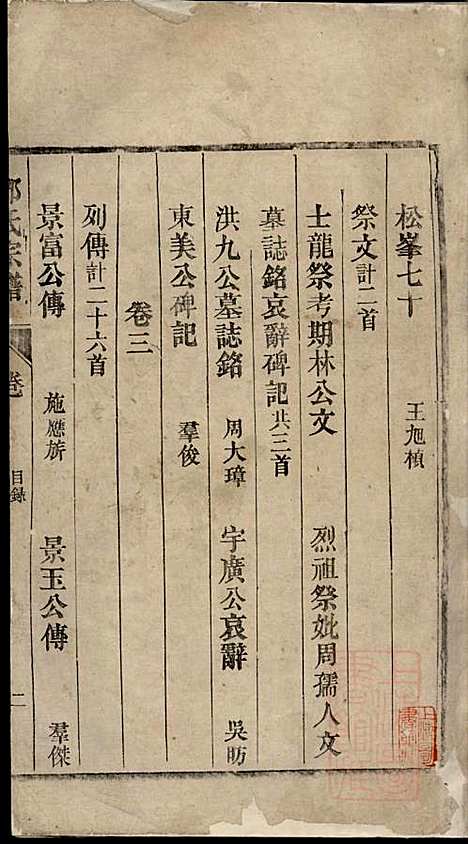 松峯七十　王旭楨
祭文計二首
士龍祭考期林公文　烈祖祭妣周孺人文
墓誌銘哀辭碑記共三首
洪九公墓誌銘　周大璋　宇廣公哀辭　吳昉
東美公碑記　羣俊
卷三
列傳計二十六首
景富公傳　施應旂　景玉公傳　羣傑
氏宗譜　卷　目錄　二